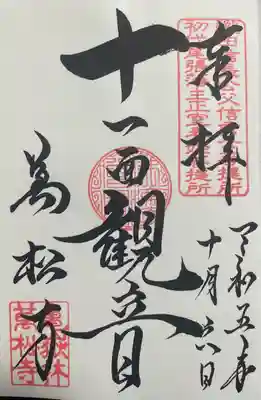 奉拝
令和五年
十月六日
十一面観音
萬松寺
亀嶽林
萬松寺